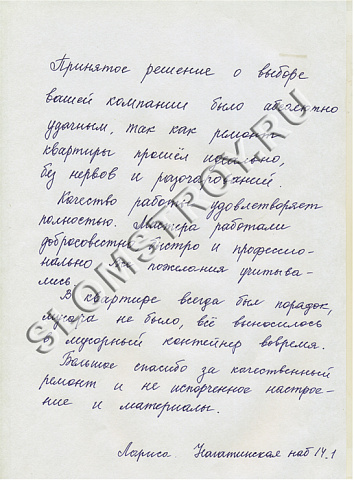 Принятое решение о выборе
вашей компании было абсолютно
удачным, так как ремонт
квартиры прошёл идеально,
без нервов и разочарований.
Качество работы удовлетворяет
полностью. Мастера работали
добросовестно, быстро и профессио-
нально, все пожелания учитыва-
лись.
В квартире всегда был порядок,
мусора не было, всё выносилось
в мусорный контейнер вовремя.
Большое спасибо за качественный
ремонт и не испорченное настрое-
ние и материалы.
Лариса. Нагатинская наб 14.1
SLOMSTROY.RU